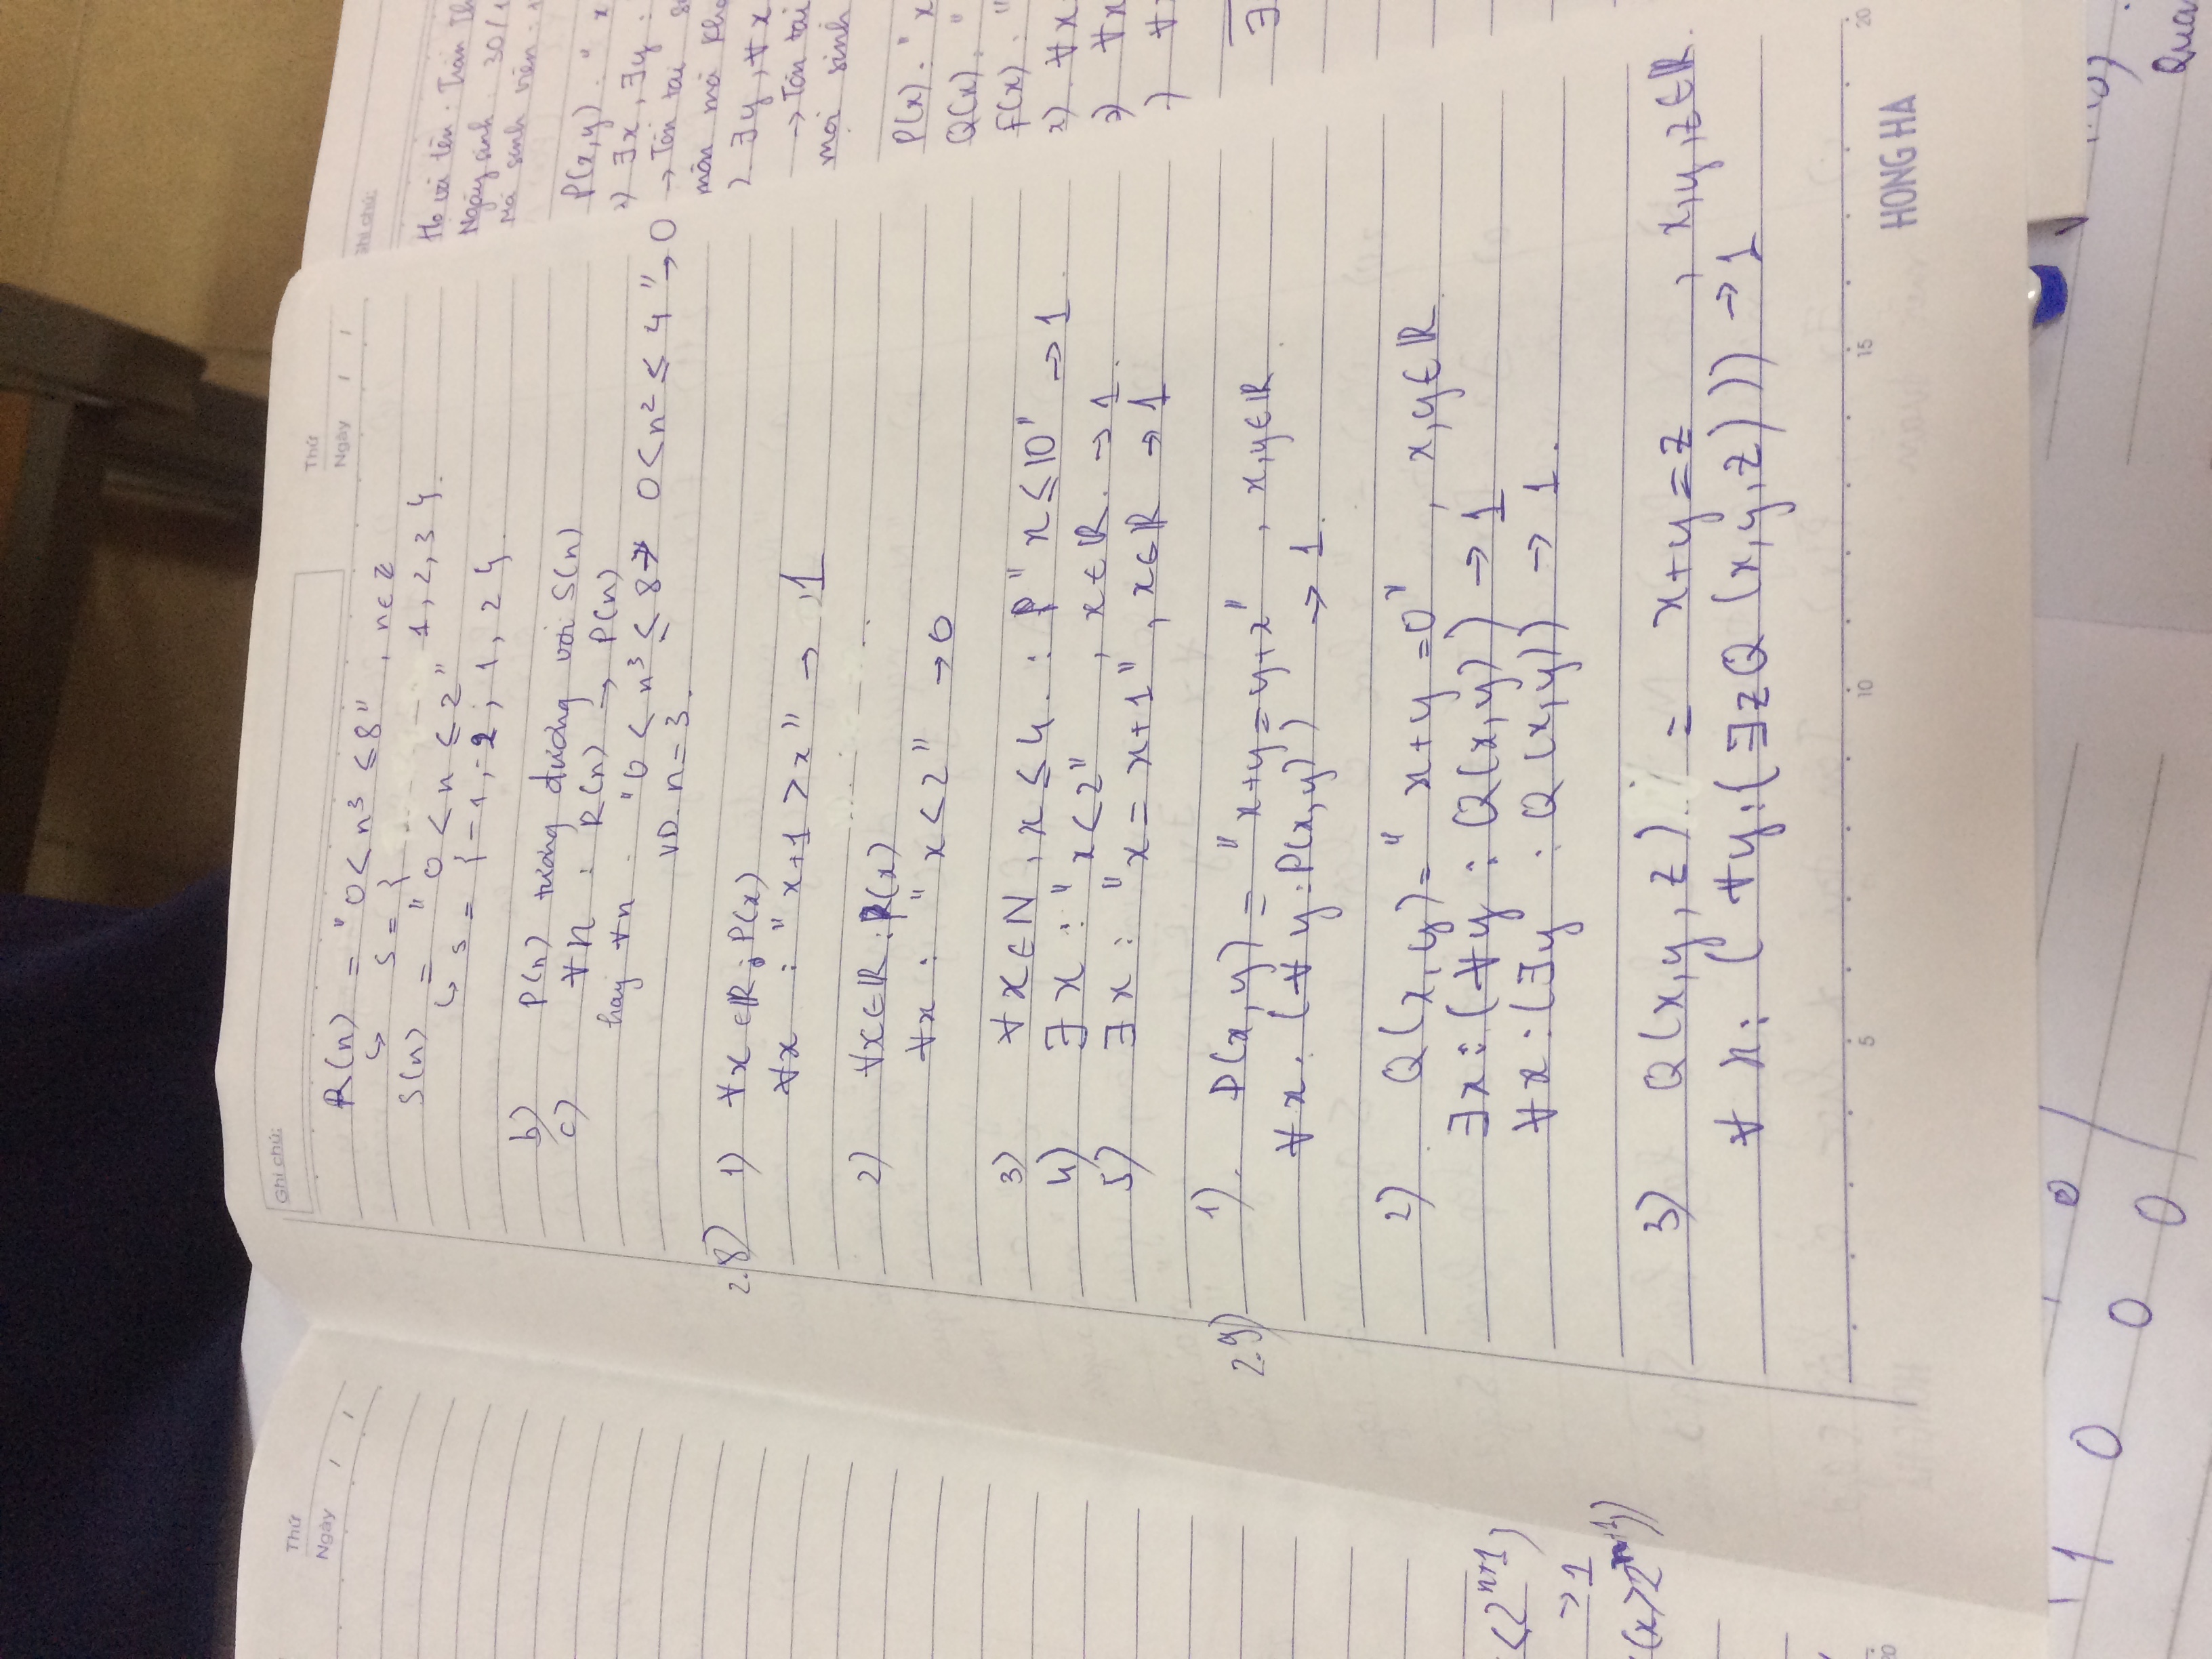 Thứ
Ngày / /
Ghi chú:
Thứ
Ngày / /
R(n) = "0 < n³ ≤ 8" , n ∈ Z
↳ S = { 1, 2, 3 }.
S(n) = "0 < n ≤ 2"
↳ S = { -1, -2; 1, 2 }.
b) P(n) tương đương với S(n)
c) ∀n : R(n) → P(n)
hay ∀n : "0 < n³ ≤ 8 → 0 < n² ≤ 4" → 0
VD. n = 3.
2.8) 1) ∀x ∈ R; P(x)
∀x : "x+1 > x" → 1
2) ∀x ∈ R : R(x)
∀x : "x < 2" → 0
3) ∀x ∈ N, x ≤ 4. : P "x ≤ 10" → 1
4) ∃x : "x < 2" , x ∈ R. → 1.
5) ∃x : "x = x+1" , x ∈ R → 1
2.9) 1). P(x,y) = "x+y = y+x" , x,y ∈ R.
∀x : (∀y : P(x,y)) → 1.
2) Q(x,y) = "x+y = 0" , x,y ∈ R
∃x : (∀y : Q(x,y)) → 1
∀x : (∃y : Q(x,y)) → 1.
3) Q(x,y,z) = x+y = z , x,y,z ∈ R.
∀x : (∀y : (∃z Q(x,y,z))) → 1
5 10 15 20
HONG HA
<2ⁿ⁺¹)
→ 1
(x > 2ⁿ⁺¹))
Ghi chú:
Họ và tên : Trần Th
Ngày sinh : 30/1
Mã sinh viên : 1
P(x,y) : " x
∃x, ∃y :
→ Tồn tại
môn mà kho
2. ∃y, ∀x
→ Tồn tại
mọi sinh
P(x) : " x
Q(x) : "
F(x) : "
∀x
2) ∀x
) ∀
∃
1 0 0
0 0
Qua